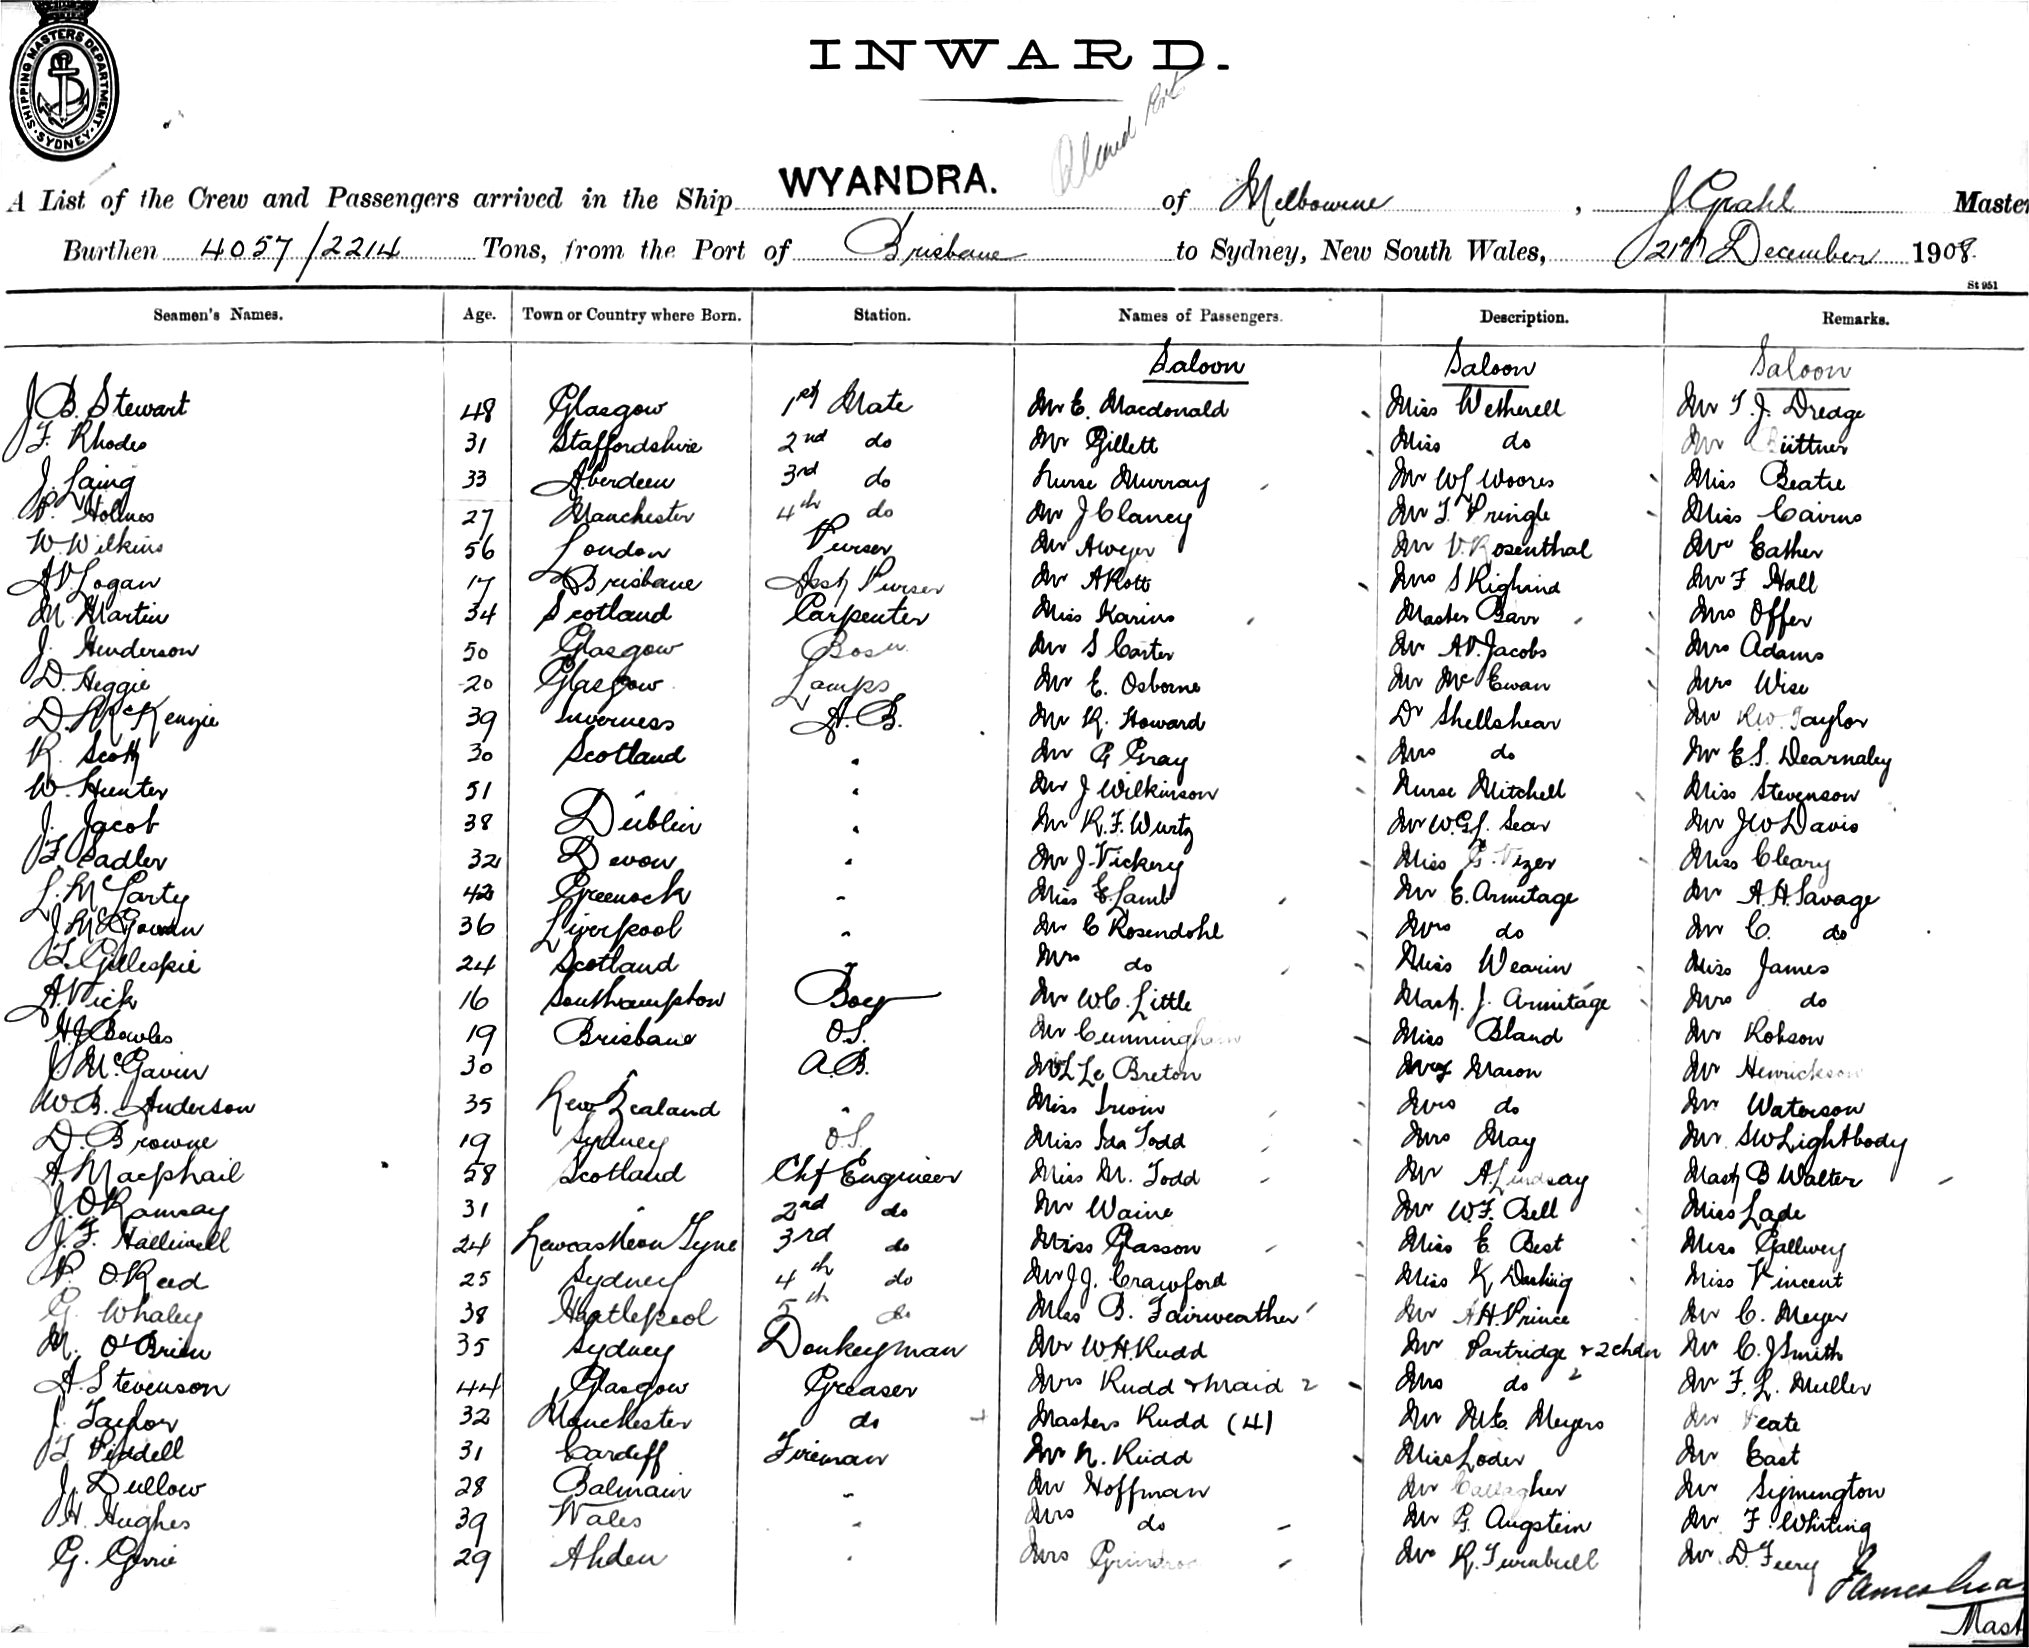 SHIPPING MASTERS DEPARTMENT. SYDNEY.
INWARD.
A List of the Crew and Passengers arrived in the Ship WYANDRA. of Melbourne, J Grahl Master
Burthen 4057/2214 Tons, from the Port of Brisbane to Sydney, New South Wales, 21st December 1908.
St 951
Seamen's Names. Age. Town or Country where Born. Station. Names of Passengers. Description. Remarks.
Saloon Saloon Saloon
J B. Stewart 48 Glasgow 1st Mate Mr E. Macdonald Miss Wetherell Mr T. J. Dredge
F. Rhodes 31 Staffordshire 2nd do Mr Gillett Miss do Mr Büttner
J. Laing 33 Aberdeen 3rd do Nurse Murray Mr W J Woores Miss Beatie
P. Holmes 27 Manchester 4th do Mr J Clancy Mr T. Pringle Miss Cairns
W. Wilkins 56 London Purser Mr Aweyer Mr V. Rosenthal Mr Eather
A V Logan 17 Brisbane Asst Purser Mr A Rott Mrs S Righind Mr F Hall
M. Martin 34 Scotland Carpenter Miss Karins Master Barr Mrs Offer
J. Henderson 50 Glasgow Bosn Mr S Carter Mr A V. Jacobs Mrs Adams
D. Heggie 20 Glasgow Lamps Mr E. Osborne Mr McEwan Mrs Wise
D. McKenzie 39 Inverness A.B. Mr K. Howard Dr Shellshear Mr R W Taylor
R. Scott 30 Scotland " Mr G Gray Mrs do Mr E. S. Dearnaley
W. Hunter 51 " " Mr J Wilkinson Nurse Mitchell Miss Stevenson
J. Jacob 38 Dublin " Mr R. F. Wurtz Mr W. G. J. Sear Mr J W Davis
T Sadler 32 Devon " Mr J. Vickery Miss G. Vizer Miss Cleary
L. McCarty 42 Greenock " Miss E. Lamb Mr E. Armitage Mr A. H. Savage
J. McGowan 36 Liverpool " Mr C Rosendohl Mrs do Mr C. do
T. Gillespie 24 Scotland " Mrs do Miss Wearin Miss James
A. Vick 16 Southampton Boy Mr W. C. Little Mast. J. Armitage Mrs do
H J Bowles 19 Brisbane O.S. Mr Cunningham Miss Bland Mr Robson
J McGavin 30 " A.B. L Le Breton Mason Mr Henrickson
W. B. Anderson 35 New Zealand " Miss Irwin Mrs do Mr Waterson
D. Browne 19 Sydney O.S. Miss Ida Todd Mrs May Mr S W Lightbody
A. Macphail 58 Scotland Chf Engineer Miss M. Todd Mr A. Lindsay Mast B Walter
J. O. Ramsay 31 " 2nd do Mr Waine Mr W. F. Bell Miss Lade
J. F. Halliwell 24 Newcastle on Tyne 3rd do Miss Glasson Miss E. Best Miss Gallwey
P. O. Reed 25 Sydney 4th do Mr J J. Crawford Miss K Darling Miss Vincent
G. Whaley 38 Hartlepool 5th do Miss B. Fairweather Mr A H. Prince Mr C. Meyer
M. O'Brien 35 Sydney Donkeyman Mr W. H. Rudd Mr Partridge & 2 chdn Mr C. J Smith
A. Stevenson 44 Glasgow Greaser Mrs Rudd & Maid 2 Mrs do 2 Mr F. L. Muller
J. Taylor 32 Manchester do Masters Rudd (4) Mr M. E. Meyers Mr Peate
T. Piddell 31 Cardiff Fireman Mr N. Rudd Miss Loder Mr East
J. Dullow 28 Balmain " Mr Hoffman Mr Callagher Mr Symington
H. Hughes 39 Wales " Mrs do Mr G. Augstein Mr F. Whiting
G. Gerrie 29 Ahden " Mrs Mr R. Turnbull Mr D. Feery
James
Mast